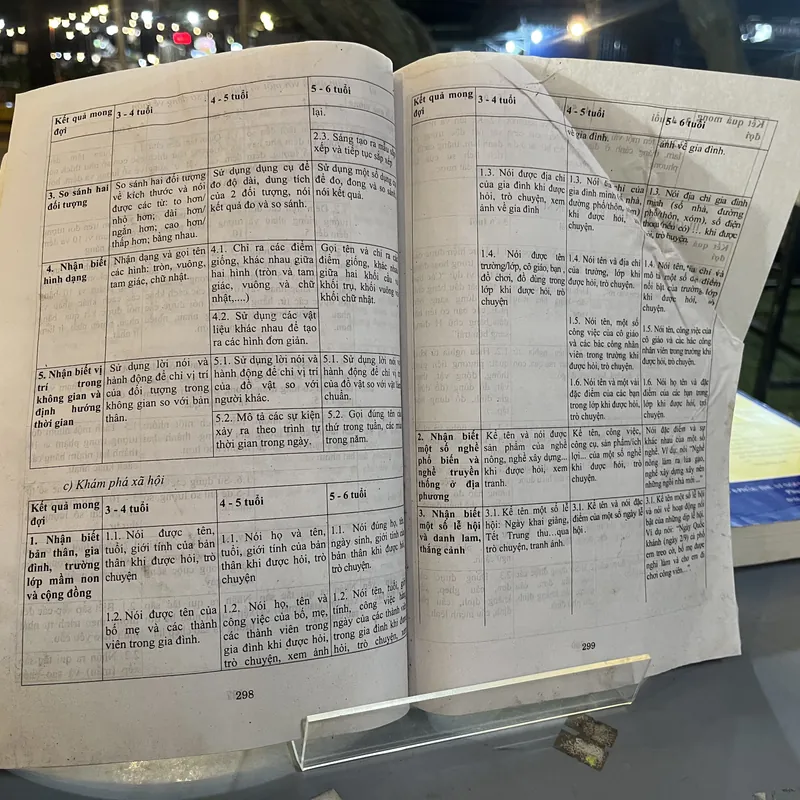 Kết quả mong đợi
3 - 4 tuổi
4 - 5 tuổi
5 - 6 tuổi
lại.
2.3. Sáng tạo ra mẫu sắp
xếp và tiếp tục sắp xếp
3. So sánh hai
đối tượng
So sánh hai đối tượng
về kích thước và nói
được các từ: to hơn/
nhỏ hơn; dài hơn/
ngắn hơn; cao hơn/
thấp hơn; bằng nhau.
Sử dụng dụng cụ để
đo độ dài, dung tích
của 2 đối tượng, nói
kết quả đo và so sánh.
Sử dụng một số dụng cụ
để đo, đong và so sánh,
nói kết quả.
4. Nhận biết
hình dạng
Nhận dạng và gọi tên
các hình: tròn, vuông,
tam giác, chữ nhật.
4.1. Chỉ ra các điểm
giống, khác nhau giữa
hai hình (tròn và tam
giác, vuông và chữ
nhật,....)
Gọi tên và chỉ ra các
điểm giống, khác nhau
giữa hai khối cầu và
khối trụ, khối vuông và
khối chữ nhật.
4.2. Sử dụng các vật
liệu khác nhau để tạo
ra các hình đơn giản.
5. Nhận biết vị
trí trong
không gian và
định hướng
thời gian
Sử dụng lời nói và
hành động để chỉ vị trí
của đối tượng trong
không gian so với bản
thân.
5.1. Sử dụng lời nói và
hành động để chỉ vị trí
của đồ vật so với
người khác.
5.1. Sử dụng lời nói và
hành động để chỉ vị
của đồ vật so với vật làm
chuẩn.
5.2. Mô tả các sự kiện
xảy ra theo trình tự
thời gian trong ngày.
5.2. Gọi đúng tên các
thứ trong tuần, các mùa
trong năm.
c) Khám phá xã hội
Kết quả mong
đợi
3 - 4 tuổi
4 - 5 tuổi
5 - 6 tuổi
1. Nhận biết
bản thân, gia
đình, trường
lớp mầm non
và cộng đồng
1.1. Nói được tên,
tuổi, giới tính của bản
thân khi được hỏi, trò
chuyện
1.1. Nói họ và tên,
tuổi, giới tính của bản
thân khi được hỏi, trò
chuyện
1.1. Nói đúng họ, tên,
ngày sinh, giới tính của
bản thân khi được hỏi,
trò chuyện.
1.2. Nói được tên của
bố mẹ và các thành
viên trong gia đình.
1.2. Nói họ, tên và
công việc của bố, mẹ,
các thành viên trong
gia đình khi được hỏi,
trò chuyện, xem ảnh
1.2. Nói tên, tuổi, giới
tính, công việc hàng
ngày của các thành viên
trong gia đình khi được
hỏi, trò chuyện, xem
298
Kết quả mong
đợi
3 - 4 tuổi
4 - 5 tuổi
5 - 6 tuổi
về gia đình.
ảnh về gia đình.
1.3. Nói được địa chỉ
của gia đình khi được
hỏi, trò chuyện, xem
ảnh về gia đình
1.3. Nói địa chỉ của
gia đình mình (số nhà,
đường phố/thôn, xóm)
khi được hỏi, trò
chuyện.
1.3. Nói địa chỉ gia đình
mình (số nhà, đường
phố/thôn, xóm), số điện
thoại (nếu có) ... khi được
hỏi, trò chuyện.
1.4. Nói được tên
trường/lớp, cô giáo, bạn ,
đồ chơi, đồ dùng trong
lớp khi được hỏi, trò
chuyện
1.4. Nói tên và địa chỉ
của trường, lớp khi
được hỏi, trò chuyện.
1.4. Nói tên, địa chỉ và
mô tả một số đặc điểm
nổi bật của trường, lớp
khi được hỏi, trò
chuyện.
1.5. Nói tên, một số
công việc của cô giáo
và các bác công nhân
viên trong trường khi
được hỏi, trò chuyện.
1.5. Nói tên, công việc của
cô giáo và các bác công
nhân viên trong trường khi
được hỏi, trò chuyện.
1.6. Nói tên và một vài
đặc điểm của các bạn
trong lớp khi được hỏi,
trò chuyện.
1.6. Nói họ tên và đặc
điểm của các bạn trong
lớp khi được hỏi, trò
chuyện.
2. Nhận biết
một số nghề
phổ biến và
nghề truyền
thống ở địa
phương
Kể tên và nói được
sản phẩm của nghề
nông, nghề xây dựng...
khi được hỏi, xem
tranh.
Kể tên, công việc,
công cụ, sản phẩm/ích
lợi... của một số nghề
khi được hỏi, trò
chuyện.
Nói đặc điểm và sự
khác nhau của một số
nghề. Ví dụ: nói "Nghề
nông làm ra lúa gạo,
nghề xây dựng xây nên
những ngôi nhà mới ..."
3. Nhận biết
một số lễ hội
và danh lam,
thắng cảnh
3.1. Kể tên một số lễ
hội: Ngày khai giảng,
Tết Trung thu…qua
trò chuyện, tranh ảnh.
3.1. Kể tên và nói đặc
điểm của một số ngày lễ
hội .
3.1. Kể tên một số lễ hội
và nói về hoạt động nổi
bật của những dịp lễ hội.
Ví dụ nói: "Ngày Quốc
khánh (ngày 2/9) cả phố
em treo cờ, bố mẹ được
nghỉ làm và cho em đi
chơi công viên..."
299